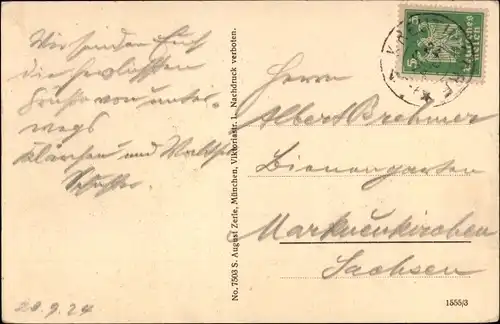 Wir senden Euch
die herzlichsten
Grüße von unter-
wegs
Klärchen und
20.9.24
No. 7503 S. August Zerle, München, Viktoriastr. 1. Nachdruck verboten.
Deutsches Reich
5 5
Herrn
Albert Brehmer
Bienengarten
Markneukirchen
Sachsen
1555/3